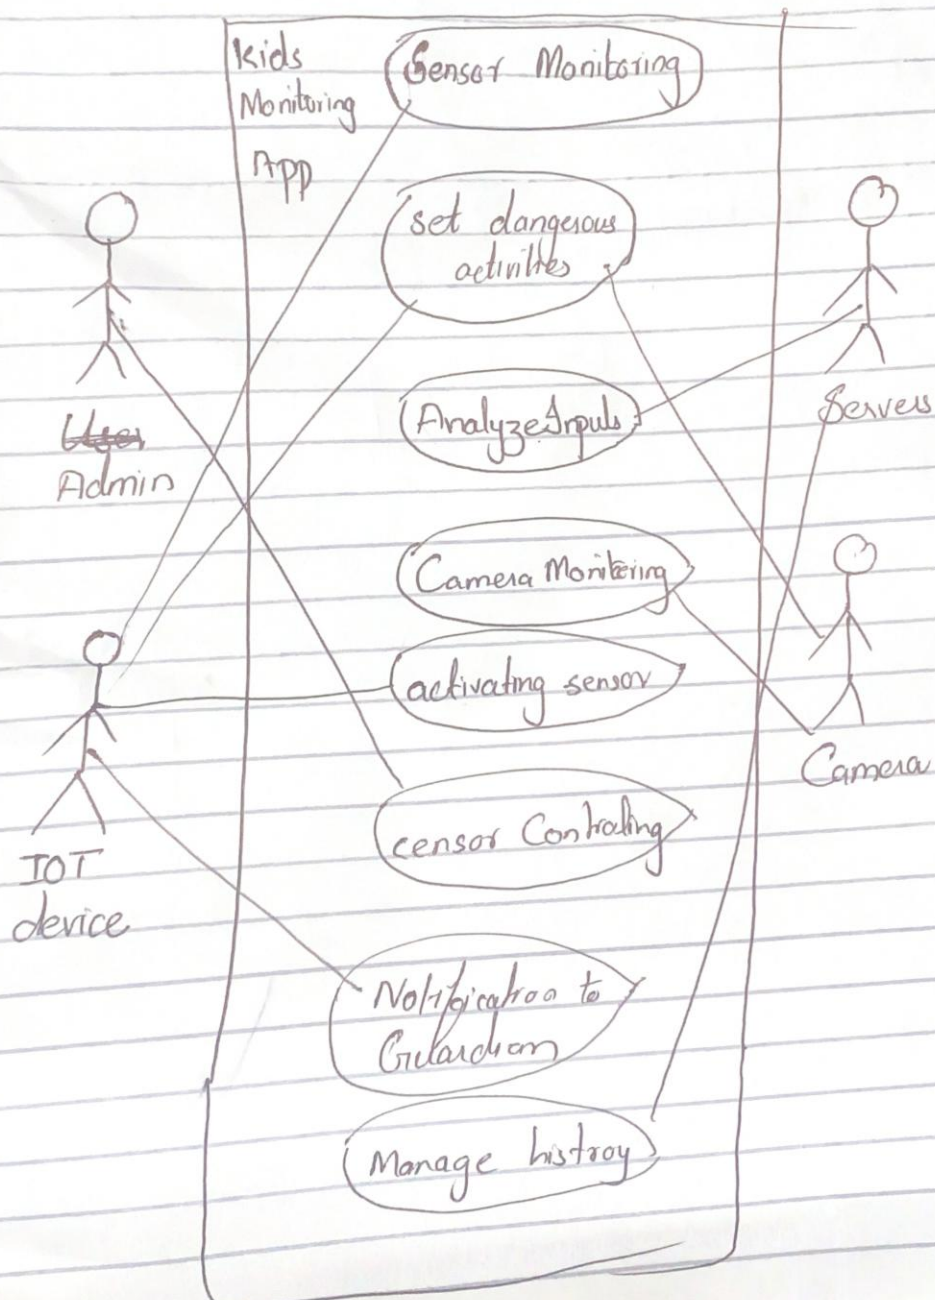 Kids
Monitoring
App
Sensor Monitoring
set dangerous
activities
Analyze Inputs
Camera Monitoring
activating sensor
censor Controling
Notification to
Guardian
Manage histroy
User
Admin
IOT
device
Servers
Camera